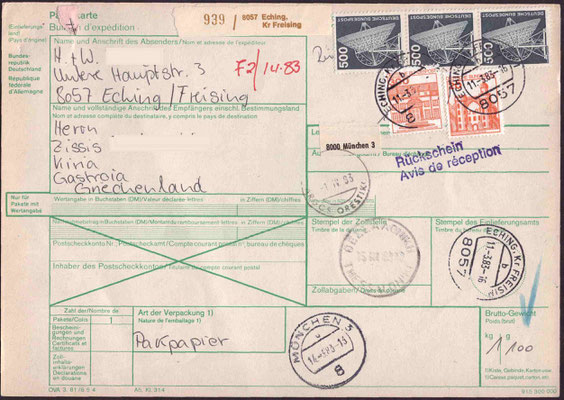 Paketkarte
Bulletin d'expédition
939 / 8057 Eching, Kr Freising
DEUTSCHE BUNDESPOST 500
DEUTSCHE BUNDESPOST 500
DEUTSCHE BUNDESPOST 500
Bundes-
republik
Deutschland
République
fédérale
d'Allemagne
Name und Anschrift des Absenders/Nom et adresse de l'expéditeur
H. + W.
Untere Hauptstr. 3
8057 Eching/Freising
F2/14.83
ECHING, KR FREISING
11.-3.83-16
b
8057
Name und vollständige Anschrift des Empfängers einschl. Bestimmungsland
Nom et adresse complète du destinataire
Herrn
Zissis
Gastroia
Griechenland
8000 München 3
Rückschein
Avis de réception
Nur für
Pakete mit
Wertangabe
Wertangabe in Buchstaben (DM)/Valeur déclarée lettres
in Ziffern (DM)/chiffres
in Ziffern (DM)/chiffres
Postscheckkonto-Nr./Compte courant postal n°, bureau de chèques
Inhaber des Postscheckkontos/Titulaire du compte courant postal
Stempel der Zollstelle
Timbre du
Stempel des Einlieferungsamts
Timbre du bureau
Zollabgaben/Droits de
ECHING, KR FREISING
11.-3.83-16
b
8057
Zahl der/Nombre de
Pakete/Colis
1
Bescheini-
gungen und
Rechnungen
Certificats et
factures
Zoll-
inhalts-
erklärungen
Déclarations
en douane
Art der Verpackung 1)
Nature de l'emballage 1)
Packpapier
MÜNCHEN 3
8
Brutto-Gewicht
Poids (brut)
kg 1 g 100
1) Kiste, Beutel, Gebinde, Karton usw.
1) Caisse, paquet, carton, etc.